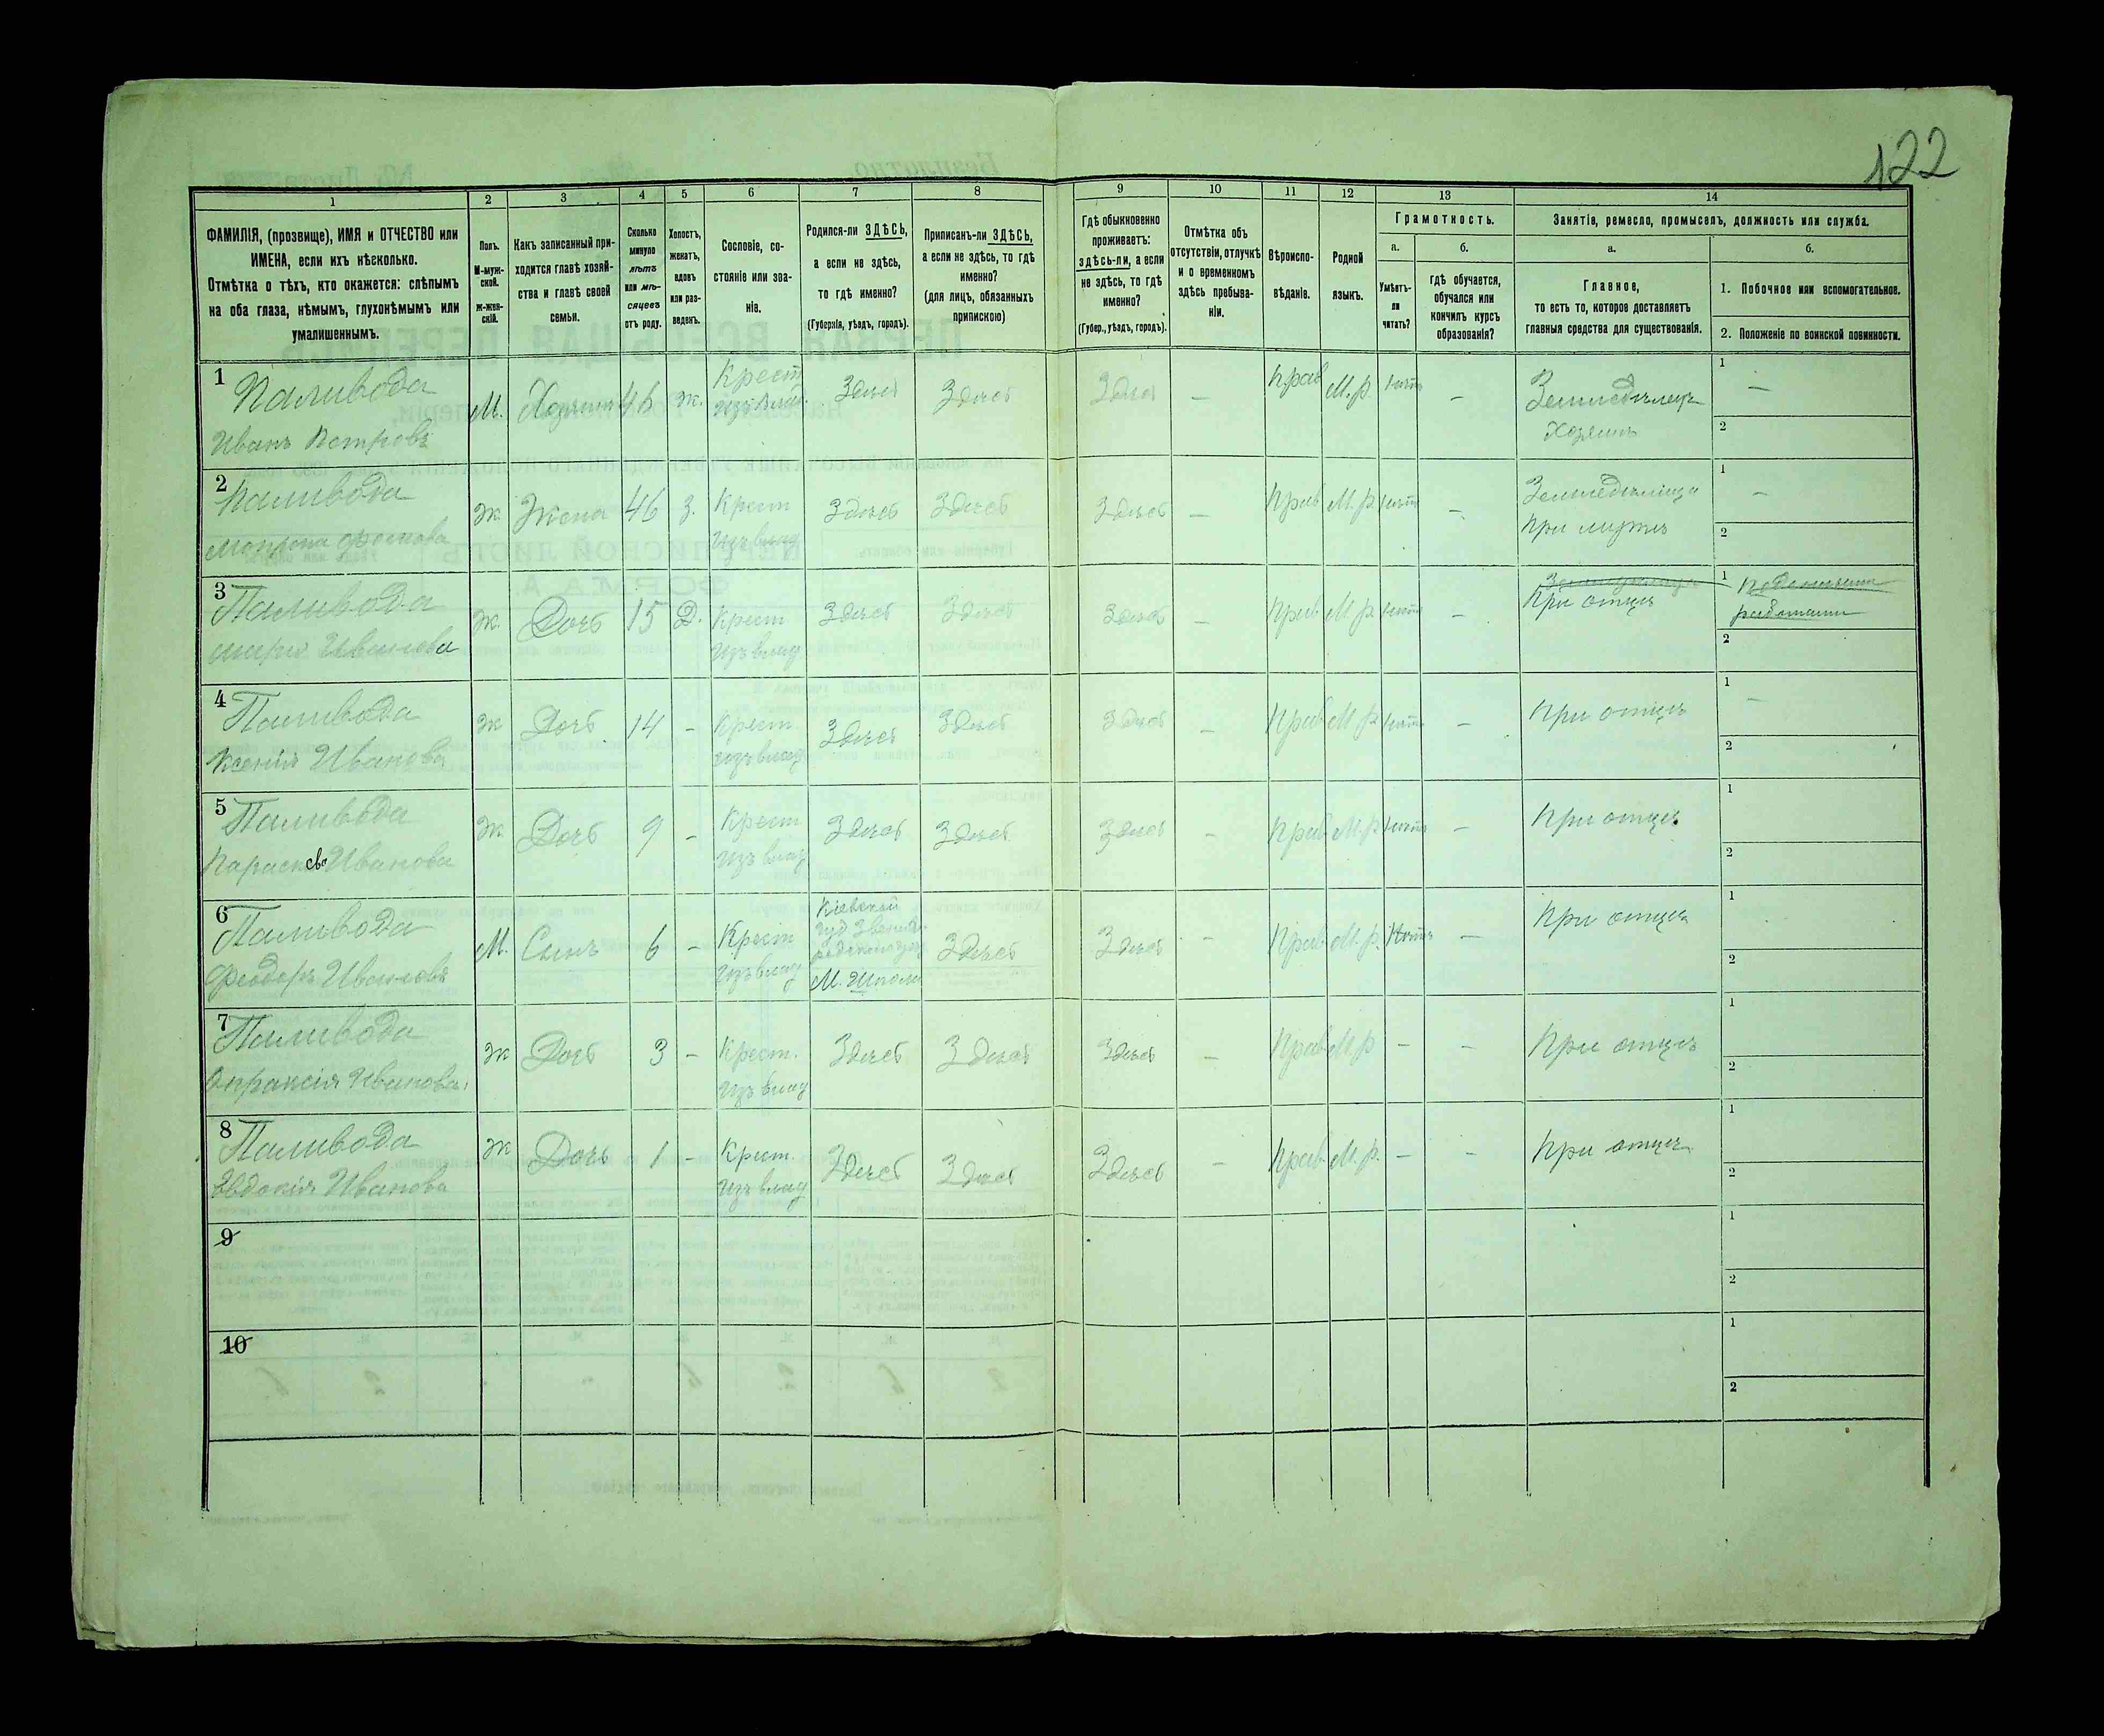 122
1
2
3
4
5
6
7
8
9
10
11
12
13
14
ФАМИЛІЯ, (прозвище), ИМЯ и ОТЧЕСТВО или
ИМЕНА, если ихъ нѣсколько.
Отмѣтка о тѣхъ, кто окажется: слѣпымъ
на оба глаза, нѣмымъ, глухонѣмымъ или
умалишеннымъ.
Полъ.
М-муж-
ской.
Ж-жен-
скій.
Какъ записанный при-
ходится главѣ хозяй-
ства и главѣ своей
семьи.
Сколько
минуло
лѣтъ
или мѣ-
сяцевъ
отъ роду.
Холостъ,
женатъ,
вдовъ
или раз-
веденъ.
Сословіе, со-
стояніе или зва-
ніе.
Родился-ли ЗДѢСЬ,
а если не здѣсь,
то гдѣ именно?
(Губернія, уѣздъ, городъ).
Приписанъ-ли ЗДѢСЬ,
а если не здѣсь, то гдѣ
именно?
(для лицъ, обязанныхъ
припискою)
Гдѣ обыкновенно
проживаетъ:
здѣсь-ли, а если
не здѣсь, то гдѣ
именно?
(Губер., уѣздъ, городъ).
Отмѣтка объ
отсутствіи, отлучкѣ
и о временномъ
здѣсь пребыва-
ніи.
Вѣроиспо-
вѣданіе.
Родной
языкъ.
Грамотность.
а.
Умѣетъ-
ли
читать?
б.
гдѣ обучается,
обучался или
кончилъ курсъ
образованія?
Занятіе, ремесло, промыселъ, должность или служба.
а.
Главное,
то есть то, которое доставляетъ
главныя средства для существованія.
б.
1. Побочное или вспомогательное.
2. Положеніе по воинской повинности.
1
Паливода
Иванъ Петровъ
М.
Хозяинъ
46
ж.
Крест
изъ влад.
Здѣсь
Здѣсь
Здѣсь
—
Прав
М.р.
нѣтъ
—
Земледѣлецъ
Хозяинъ
1
—
2
2
Паливода
Ж
Жена
46
З.
Крест
изъ влад
Здѣсь
Здѣсь
Здѣсь
—
Прав
М.р.
нѣтъ
—
При мужѣ
1
—
2
3
Паливода
Иванова
Ж.
Дочь
15
Д.
Крест
изъ влад
Здѣсь
Здѣсь
Здѣсь
—
Прав
М.р.
нѣтъ
—
При отцѣ
1
2
4
Паливода
Ксенія Иванова
Ж
Дочь
14
—
Крест
изъ влад
Здѣсь
Здѣсь
Здѣсь
—
Прав
М.р.
нѣтъ
—
При отцѣ
1
—
2
5
Паливода
Параскева Иванова
Ж
Дочь
9
—
Крест
изъ влад
Здѣсь
Здѣсь
Здѣсь
—
Прав
М.р.
нѣтъ
—
При отцѣ.
1
2
6
Паливода
Феодоръ Ивановъ
М.
Сынъ
6
—
Крест
изъ влад
Кіевской
М. Шпола
Здѣсь
Здѣсь
—
Прав
М.р.
Нѣтъ
—
При отцѣ
1
2
7
Паливода
Опраксія Иванова
Ж
Дочь
3
—
Крест.
изъ влад
Здѣсь
Здѣсь
Здѣсь
—
Прав
М.р
—
—
При отцѣ
1
2
8
Паливода
Евдокія Иванова
Ж
Дочь
1
—
Крест.
изъ влад
Здѣсь
Здѣсь
Здѣсь
—
Прав
М.р.
—
—
При отцѣ
1
2
9
1
2
10
1
2